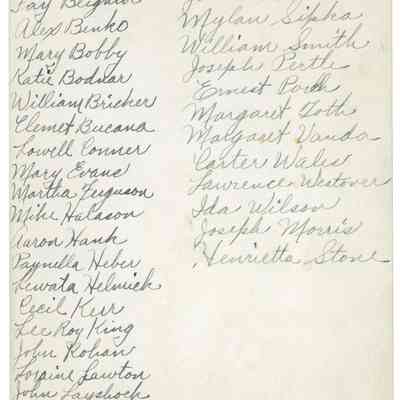 Fay
Alex Benko
Mary Bobby
Katie Bodnar
William Bricker
Clemet Bucana
Lowell Conner
Mary Evans
Martha Ferguson
Mike Halason
Aaron Hank
Paynella Heber
Lewata Helmick
Cecil Kerr
Lee Roy King
John Rohan
Loraine Lawton
John Layshock
Mylan Sipka
William Smith
Joseph Pertle
Ernest Poch
Margaret Toth
Margaret Vanda
Carter Wales
Lawrence Westover
Ida Wilson
Joseph Morris
Henrietta Stone